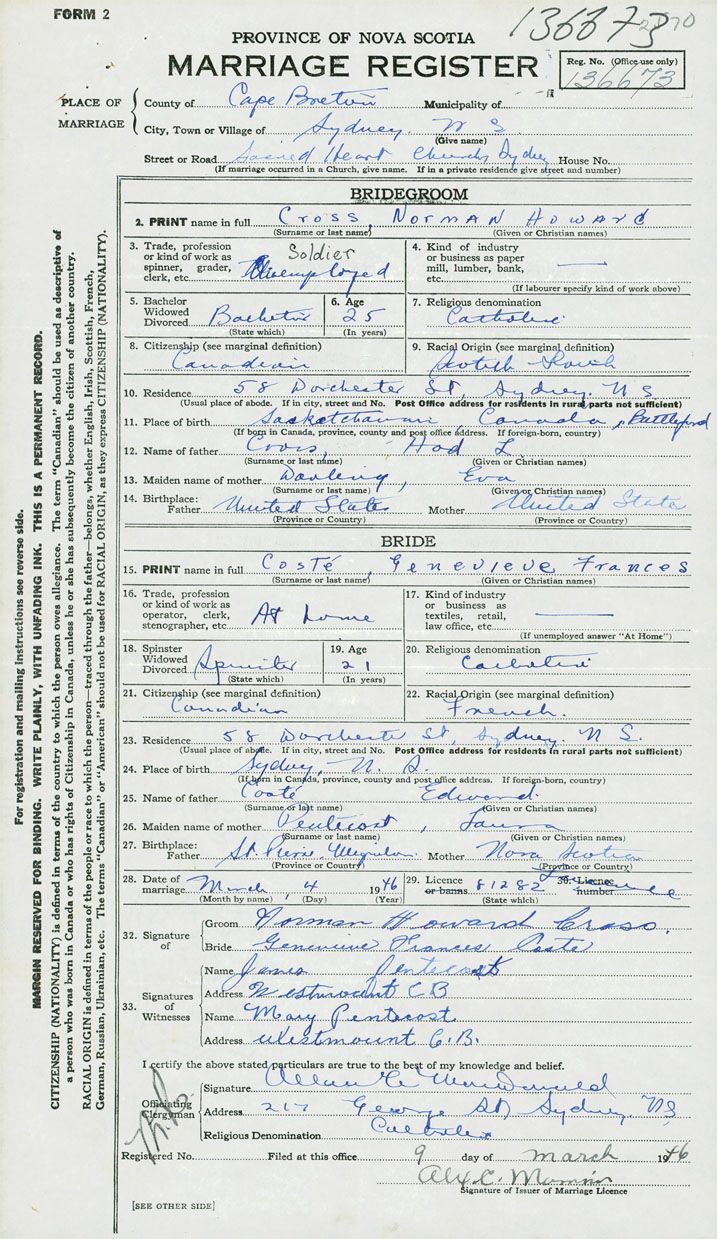 FORM 2
136673
PROVINCE OF NOVA SCOTIA
MARRIAGE REGISTER
Reg. No. (Office use only)
136673
PLACE OF MARRIAGE
County of Cape Breton Municipality of
City, Town or Village of Sydney, N S
(Give name)
Street or Road Sacred Heart Church, Sydney House No.
(If marriage occurred in a Church, give name. If in a private residence give street and number)
BRIDEGROOM
2. PRINT name in full CROSS, NORMAN HOWARD
(Surname or last name) (Given or Christian names)
3. Trade, profession or kind of work as spinner, grader, clerk, etc. Soldier Unemployed
4. Kind of industry or business as paper mill, lumber, bank, etc. —
(If labourer specify kind of work above)
5. Bachelor Widowed Divorced Bachelor
(State which)
6. Age 25
(In years)
7. Religious denomination Catholic
8. Citizenship (see marginal definition) Canadian
9. Racial Origin (see marginal definition) Scotish Irish
10. Residence 58 Dorchester St, Sydney, N S
(Usual place of abode. If in city, street and No. Post Office address for residents in rural parts not sufficient)
11. Place of birth Saskatchawan, Canada, Battleford
(If born in Canada, province, county and post office address. If foreign-born, country)
12. Name of father Cross, L.
(Surname or last name) (Given or Christian names)
13. Maiden name of mother Darling, Eva
(Surname or last name) (Given or Christian names)
14. Birthplace: Father United States Mother United State
(Province or Country) (Province or Country)
BRIDE
15. PRINT name in full COSTÉ, GENEVIEVE FRANCES
(Surname or last name) (Given or Christian names)
16. Trade, profession or kind of work as operator, clerk, stenographer, etc. At home
17. Kind of industry or business as textiles, retail, law office, etc. —
(If unemployed answer "At Home")
18. Spinster Widowed Divorced Spinster
(State which)
19. Age 21
(In years)
20. Religious denomination Catholic
21. Citizenship (see marginal definition) Canadian
22. Racial Origin (see marginal definition) French.
23. Residence 58 Dorchester St, Sydney. N S.
(Usual place of abode. If in city, street and No. Post Office address for residents in rural parts not sufficient)
24. Place of birth Sydney, N. S.
(If born in Canada, province, county and post office address. If foreign-born, country)
25. Name of father Costé Edward
(Surname or last name) (Given or Christian names)
26. Maiden name of mother Pentecost, Laura
(Surname or last name) (Given or Christian names)
27. Birthplace: Father St. Pierre Miquelon Mother Nova Scotia
(Province or Country) (Province or Country)
28. Date of marriage March, 4 1946
(Month by name) (Day) (Year)
29. Licence or banns 81282
(State which)
30. Licence number Licence
32. Signature of
Groom Norman Howard Cross.
Bride Genevieve Frances Coste
33. Signatures of Witnesses
Name James Pentecost
Address Westmount C B
Name Mary Pentecost
Address Westmount C.B.
I certify the above stated particulars are true to the best of my knowledge and belief.
Officiating Clergyman
Signature Allan MacDonald
Address 217 George St, Sydney, N S
Religious Denomination Catholic
Registered No. Filed at this office 9 day of march 1946
Alex. C.
Signature of Issuer of Marriage Licence
[SEE OTHER SIDE]
For registration and mailing instructions see reverse side.
MARGIN RESERVED FOR BINDING. WRITE PLAINLY, WITH UNFADING INK. THIS IS A PERMANENT RECORD.
CITIZENSHIP (NATIONALITY) is defined in terms of the country to which the person owes allegiance. The term "Canadian" should be used as descriptive of
a person who was born in Canada or who has rights of Citizenship in Canada, unless he or she has subsequently become the citizen of another country.
RACIAL ORIGIN is defined in terms of the people or race to which the person—traced through the father—belongs, whether English, Irish, Scottish, French,
German, Russian, Ukrainian, etc. The terms "Canadian" or "American" should not be used for RACIAL ORIGIN, as they express CITIZENSHIP (NATIONALITY).